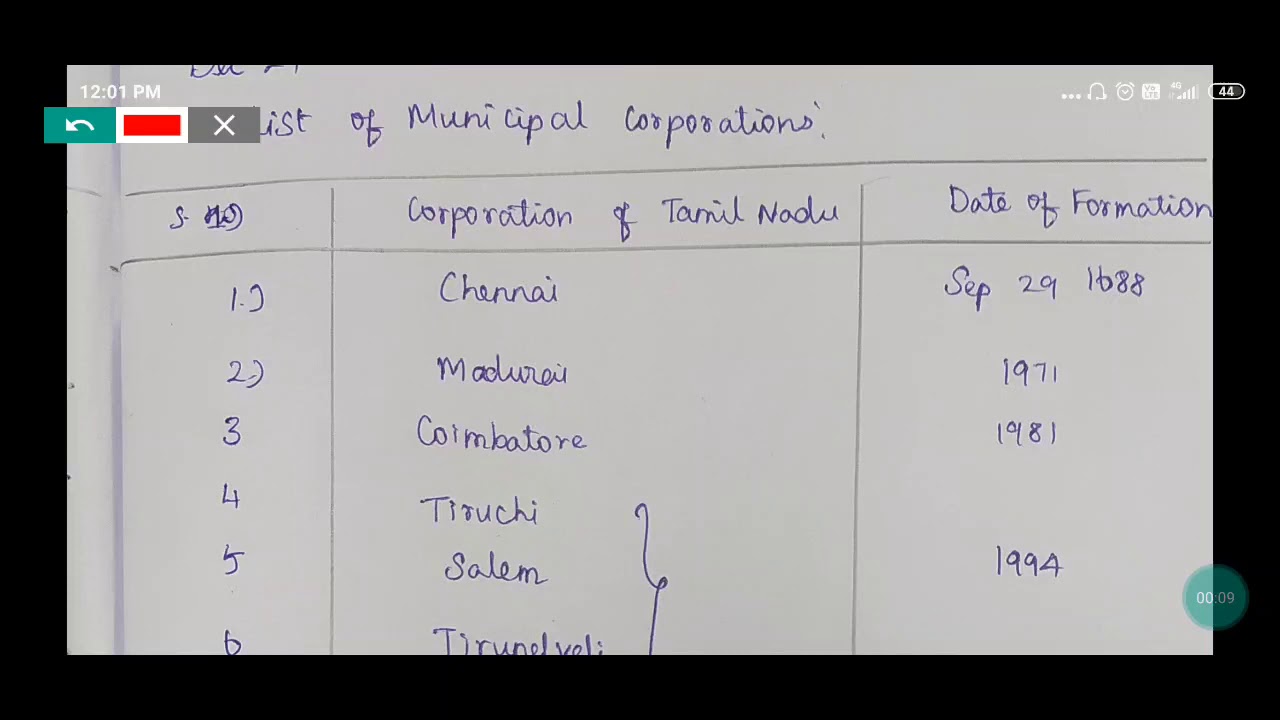 12:01 PM
4G 44
ist of Municipal Corporations:
S. no) Corporation of Tamil Nadu Date of Formation
1.) Chennai Sep 29 1688
2.) Madurai 1971
3 Coimbatore 1981
4 Tiruchi
5 Salem 1994
6 Tirunelveli
00:09